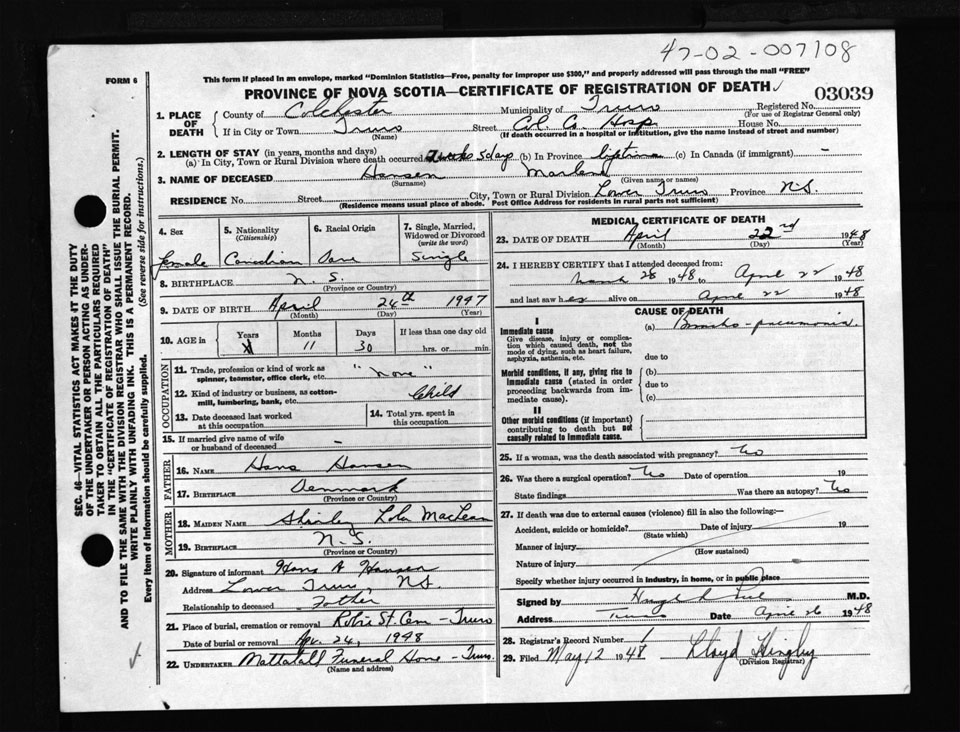 47-02-007108
FORM 6
This form if placed in an envelope, marked "Dominion Statistics—Free, penalty for improper use $300," and properly addressed will pass through the mail "FREE"
PROVINCE OF NOVA SCOTIA—CERTIFICATE OF REGISTRATION OF DEATH
03039
1. PLACE OF DEATH { County of Colchester Municipality of Truro Registered No.
(For use of Registrar General only)
If in City or Town Truro Street Col. Co. Hosp House No.
(Name) (If death occurred in a hospital or institution, give the name instead of street and number)
2. LENGTH OF STAY (in years, months and days)
(a) In City, Town or Rural Division where death occurred 3 weeks 5 days (b) In Province lifetime (c) In Canada (if immigrant) -
3. NAME OF DECEASED Hansen Marlene
(Surname) (Given name or names)
RESIDENCE No. Street City, Town or Rural Division Lower Truro Province N.S.
(Residence means usual place of abode. Post Office Address for residents in rural parts not sufficient)
4. Sex 5. Nationality (Citizenship) 6. Racial Origin 7. Single, Married, Widowed or Divorced (write the word)
female Canadian Dane Single
8. BIRTHPLACE N.S.
(Province or Country)
9. DATE OF BIRTH April 24th 1947
(Month) (Day) (Year)
10. AGE in Years Months Days If less than one day old
11 30 hrs. or min.
OCCUPATION
11. Trade, profession or kind of work as spinner, teamster, office clerk, etc. "none"
12. Kind of industry or business, as cotton-mill, lumbering, bank, etc. Child
13. Date deceased last worked at this occupation
14. Total yrs. spent in this occupation
15. If married give name of wife or husband of deceased -
FATHER
16. NAME Hans Hansen
17. BIRTHPLACE Denmark
(Province or Country)
MOTHER
18. MAIDEN NAME Shirley Lola MacLean
19. BIRTHPLACE N.S.
(Province or Country)
20. Signature of informant Hans A Hansen
Address Lower Truro, N.S.
Relationship to deceased Father
21. Place of burial, cremation or removal Robie St. Cem - Truro
Date of burial or removal Apr. 24, 1948
22. UNDERTAKER Mattatall Funeral Home - Truro.
(Name and address)
MEDICAL CERTIFICATE OF DEATH
23. DATE OF DEATH April 22nd 1948
(Month) (Day) (Year)
24. I HEREBY CERTIFY that I attended deceased from:
March 28 1948 to April 22 1948
and last saw her alive on April 22 1948
CAUSE OF DEATH
I
Immediate cause (a) Broncho-pneumonia.
Give disease, injury or complication which caused death, not the mode of dying, such as heart failure, asphyxia, asthenia, etc.
due to
Morbid conditions, if any, giving rise to immediate cause (stated in order proceeding backwards from immediate cause).
(b)
due to
(c)
II
Other morbid conditions (if important) contributing to death but not causally related to immediate cause.
25. If a woman, was the death associated with pregnancy? No
26. Was there a surgical operation? No Date of operation 19
State findings Was there an autopsy? No
27. If death was due to external causes (violence) fill in also the following:—
Accident, suicide or homicide? Date of injury 19
(State which)
Manner of injury
(How sustained)
Nature of injury
Specify whether injury occurred in industry, in home, or in public place
Signed by Hugh M.D.
Address Truro Date April 26 1948
28. Registrar's Record Number 1
29. Filed May 12 1948 Lloyd Hingley
(Division Registrar)
SEC. 46—VITAL STATISTICS ACT MAKES IT THE DUTY
OF THE UNDERTAKER OR PERSON ACTING AS UNDER-
TAKER TO OBTAIN ALL THE PARTICULARS REQUIRED
IN THE "CERTIFICATE OF REGISTRATION OF DEATH"
AND TO FILE THE SAME WITH THE DIVISION REGISTRAR WHO SHALL ISSUE THE BURIAL PERMIT.
WRITE PLAINLY WITH UNFADING INK. THIS IS A PERMANENT RECORD.
Every item of information should be carefully supplied. (See reverse side for instructions.)